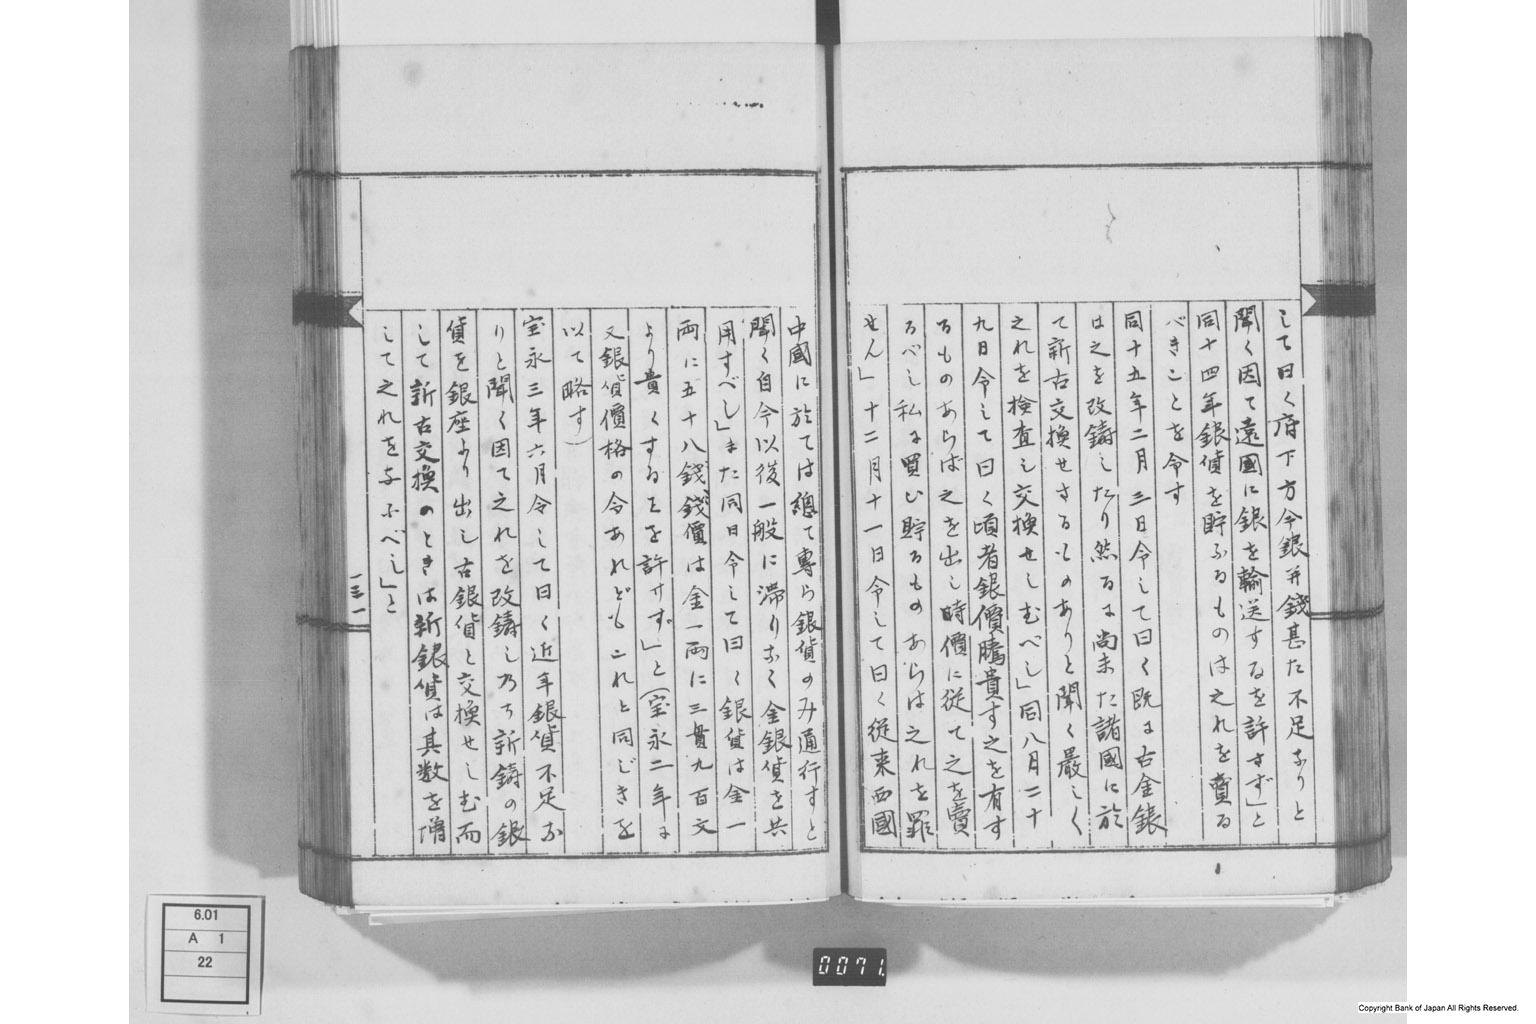 して曰く府下方今銀并錢甚た不足なりと
聞く因て遠國に銀を輸送するを許さず」と
同十四年銀貨を貯ふるものは之れを賣る
べきことを令す
同十五年二月三日令して曰く既に古金銀
は之を改鑄したり然るに尚未た諸國に於
て新古交換せさるものありと聞く嚴しく
之れを檢査し交換せしむべし」同八月二十
九日令して曰く頃者銀價騰貴す之を有す
るものあらば之を出し時價に従て之を賣
るべし私に買ひ貯るものあらは之れを罪
せん」十二月十一日令して曰く従来西國
中國に於ては總て專ら銀貨のみ通行すと
聞く自今以後一般に滞りなく金銀貨を共
用すべし」また同日令して曰く銀貨は金一
両に五十八錢錢價は金一両に三貫九百文
より貴くするを許サず」と(宝永二年に
又銀貨價格の令あれどもこれと同じきを
以て略す)
宝永三年六月令して曰く近年銀貨不足な
りと聞く因て之れを改鑄し乃ち新鑄の銀
貨を銀座より出し古銀貨と交換せしむ而
して新古交換のときは新銀貨は其数を増
して之れを与ふべし」と
一三一
6.01
A 1
22
0071
Copyright Bank of Japan All Rights Reserved.